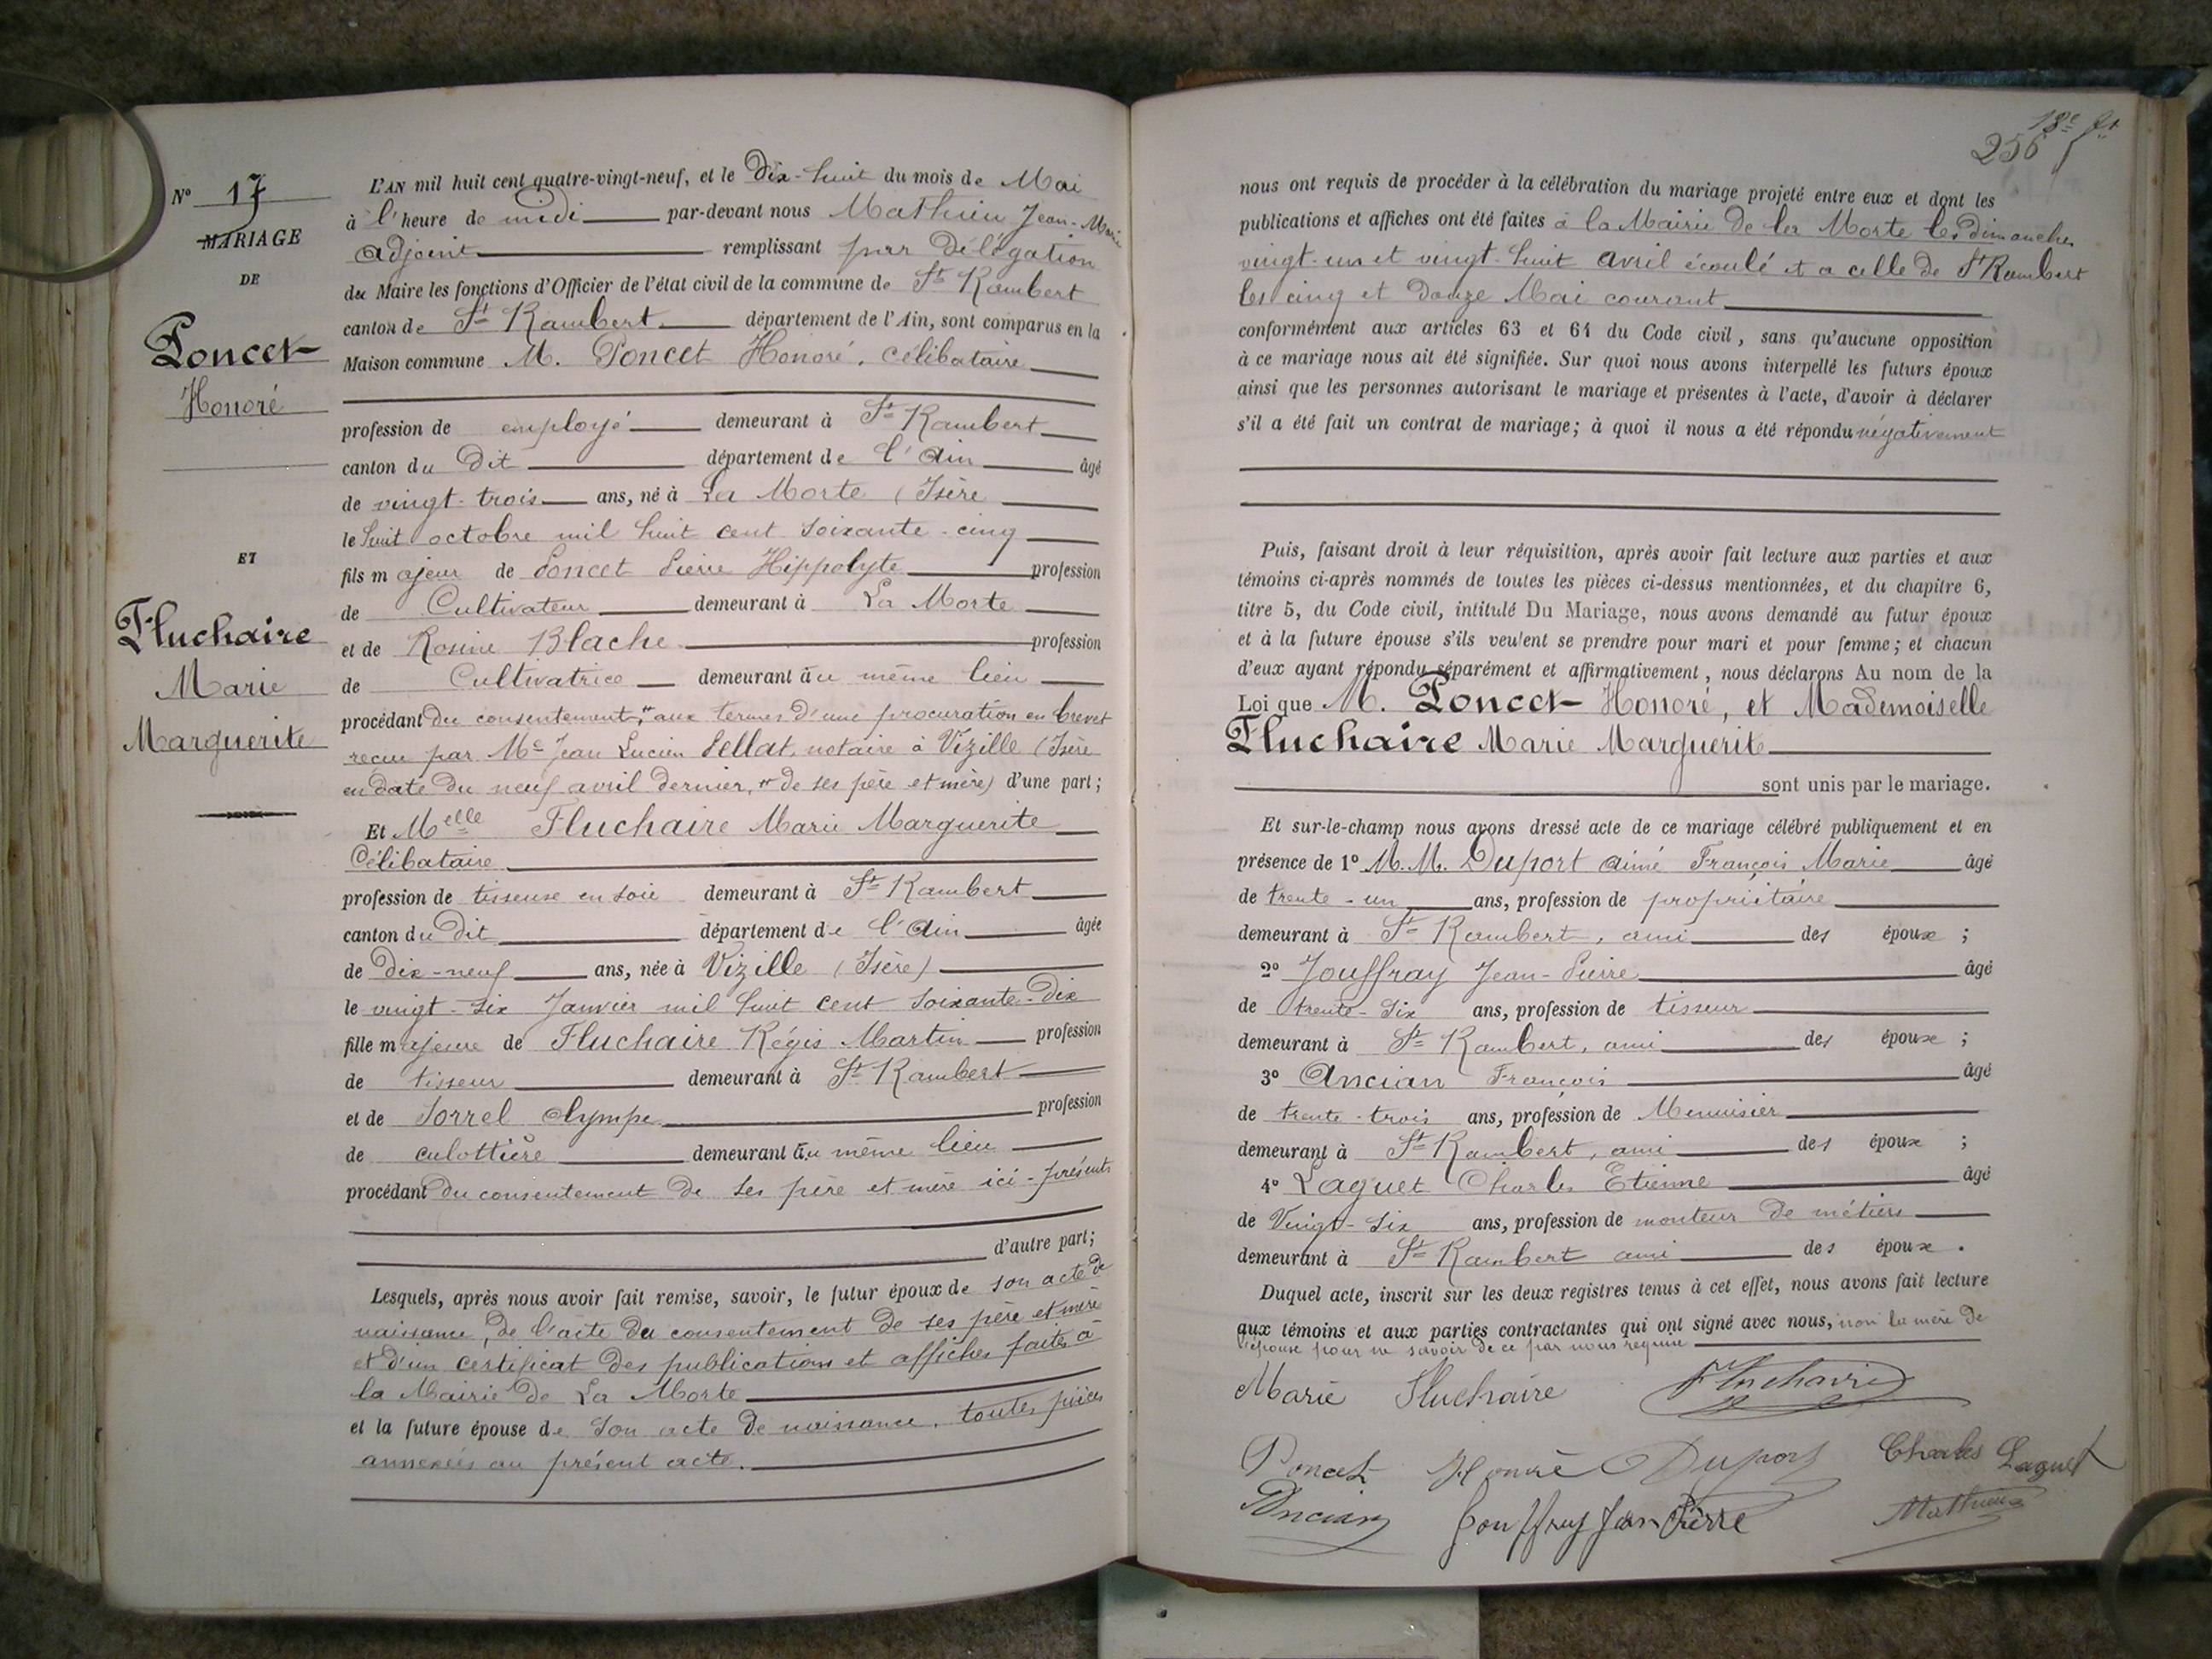 N° 17
MARIAGE
DE
Poncet
Honoré
ET
Fluchaire
Marie
Marguerite
L'AN mil huit cent quatre-vingt-neuf, et le Dix-huit du mois de Mai
à l'heure de midi par-devant nous Mathieu Jean-Marie
adjoint remplissant par délégation
du Maire les fonctions d'Officier de l'état civil de la commune de St Rambert
canton de St Rambert département de l'Ain, sont comparus en la
Maison commune M. Poncet Honoré, célibataire
profession de employé demeurant à St Rambert
canton du Dit département de l'Ain âgé
de vingt-trois ans, né à La Morte (Isère
le huit octobre mil huit cent soixante-cinq
fils majeur de Poncet Pierre Hippolyte profession
de Cultivateur demeurant à La Morte
et de Rosine Blache profession
de Cultivatrice demeurant au même lieu
procédant du consentement, "aux termes d'une procuration en brevet
reçue par Me Jean Lucien Pellat, notaire à Vizille (Isère
en date du neuf avril dernier, " de ses père et mère) d'une part;
Et Melle Fluchaire Marie Marguerite
Célibataire
profession de tisseuse en soie demeurant à St Rambert
canton du Dit département de l'Ain âgée
de Dix-neuf ans, née à Vizille (Isère)
le vingt-six Janvier mil huit cent soixante-dix
fille majeure de Fluchaire Régis Martin profession
de tisseur demeurant à St Rambert
et de Sorrel Olympe profession
de culottière demeurant au même lieu
procédant du consentement de ses père et mère ici-présents
d'autre part;
Lesquels, après nous avoir fait remise, savoir, le futur époux de son acte de
naissance, de l'acte du consentement de ses père et mère
et d'un certificat des publications et affiches faites à
la Mairie de La Morte
et la future épouse de son acte de naissance, toutes pièces
annexées au présent acte.
18e ft
256
nous ont requis de procéder à la célébration du mariage projeté entre eux et dont les
publications et affiches ont été faites à la Mairie de La Morte les dimanches
vingt-un et vingt-huit avril écoulé et a celle de St Rambert
les cinq et douze Mai courant
conformément aux articles 63 et 64 du Code civil, sans qu'aucune opposition
à ce mariage nous ait été signifiée. Sur quoi nous avons interpellé les futurs époux
ainsi que les personnes autorisant le mariage et présentes à l'acte, d'avoir à déclarer
s'il a été fait un contrat de mariage; à quoi il nous a été répondu négativement
Puis, faisant droit à leur réquisition, après avoir fait lecture aux parties et aux
témoins ci-après nommés de toutes les pièces ci-dessus mentionnées, et du chapitre 6,
titre 5, du Code civil, intitulé Du Mariage, nous avons demandé au futur époux
et à la future épouse s'ils veulent se prendre pour mari et pour femme; et chacun
d'eux ayant répondu séparément et affirmativement, nous déclarons Au nom de la
Loi que M. Poncet Honoré, et Mademoiselle
Fluchaire Marie Marguerite
sont unis par le mariage.
Et sur-le-champ nous avons dressé acte de ce mariage célébré publiquement et en
présence de 1° M.M. Duport Aimé François Marie âgé
de trente-un ans, profession de propriétaire
demeurant à St Rambert, ami des époux ;
2° Jouffray Jean-Pierre âgé
de trente-six ans, profession de tisseur
demeurant à St Rambert, ami des époux ;
3° Ancian François âgé
de trente-trois ans, profession de Menuisier
demeurant à St Rambert, ami des époux ;
4° Laguet Charles Etienne âgé
de Vingt-six ans, profession de monteur de métiers
demeurant à St Rambert ami des époux .
Duquel acte, inscrit sur les deux registres tenus à cet effet, nous avons fait lecture
aux témoins et aux parties contractantes qui ont signé avec nous, non la mère de
l'épouse pour ne savoir de ce par nous requise
Marie Fluchaire Fluchaire
Poncet Honoré Duport Charles Laguet
Ancian Jouffray Jean Pierre Mathieu